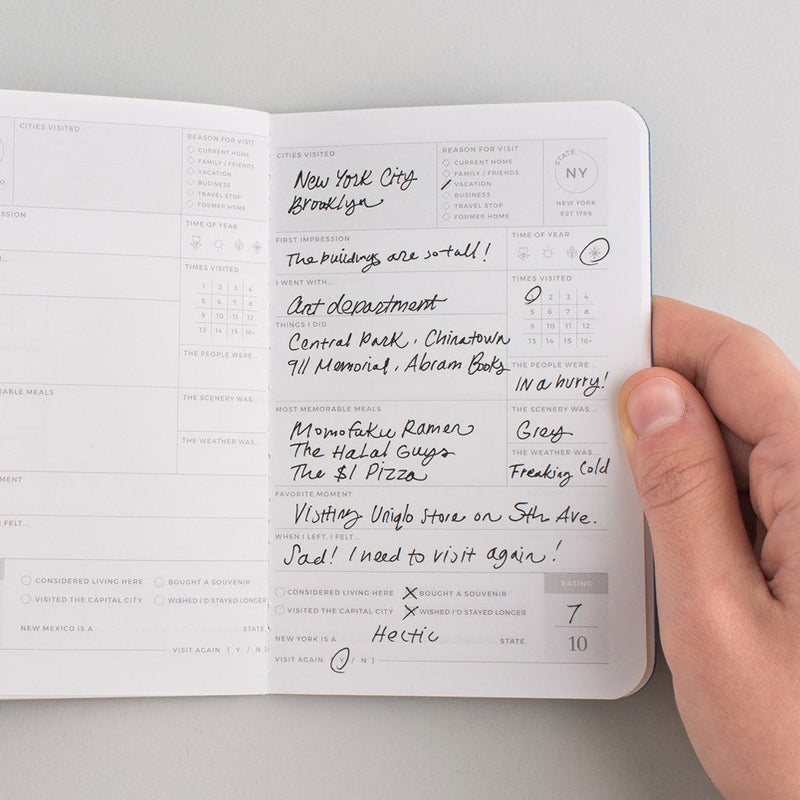 CITIES VISITED
REASON FOR VISIT
CURRENT HOME
FAMILY / FRIENDS
VACATION
BUSINESS
TRAVEL STOP
FORMER HOME
TIME OF YEAR
TIMES VISITED
1 2 3 4
5 6 7 8
9 10 11 12
13 14 15 16+
THE PEOPLE WERE...
MEALS
THE SCENERY WAS...
THE WEATHER WAS...
FELT...
CONSIDERED LIVING HERE
BOUGHT A SOUVENIR
VISITED THE CAPITAL CITY
WISHED I'D STAYED LONGER
NEW MEXICO IS A
STATE.
VISIT AGAIN [ Y / N ]
CITIES VISITED
New York City
Brooklyn
REASON FOR VISIT
CURRENT HOME
FAMILY / FRIENDS
VACATION
BUSINESS
TRAVEL STOP
FORMER HOME
STATE
NY
NEW YORK
EST 1788
FIRST IMPRESSION
The buildings are so tall!
TIME OF YEAR
I WENT WITH...
Art department
TIMES VISITED
2 3 4
5 6 7 8
9 10 11 12
13 14 15 16+
THINGS I DID
Central Park, Chinatown
911 Memorial, Abram Books
THE PEOPLE WERE...
In a hurry!
MOST MEMORABLE MEALS
Momofuku Ramen
The Halal Guys
The $1 Pizza
THE SCENERY WAS...
Grey
THE WEATHER WAS...
Freaking Cold
FAVORITE MOMENT
Visiting Uniqlo Store on 5th Ave.
WHEN I LEFT, I FELT...
Sad! I need to visit again!
CONSIDERED LIVING HERE
BOUGHT A SOUVENIR
VISITED THE CAPITAL CITY
WISHED I'D STAYED LONGER
NEW YORK IS A Hectic STATE.
VISIT AGAIN [ Y / N ]
RATING
7
10